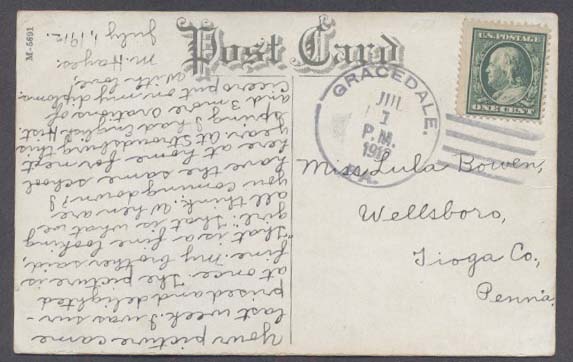 M-5691
Post Card
U.S. POSTAGE
ONE CENT
GRACEDALE.
JUL
1
P.M.
1912
PA.
Miss Lula Bowen,
Wellsboro,
Tioga Co.,
Penn'a.
Your picture came
last week. I was sur-
prised and delighted
at once. The picture is
fine. My brother said,
"that is a fine looking
girl." That is what we
all think. When are
you coming down? I
have the same school
here at home for next
year. At Stroudsburg this
spring I had English Hist.
and 3 more Orations of
Cicero put on my diploma.
With love,
M. Hayes.
July 1, 1912.